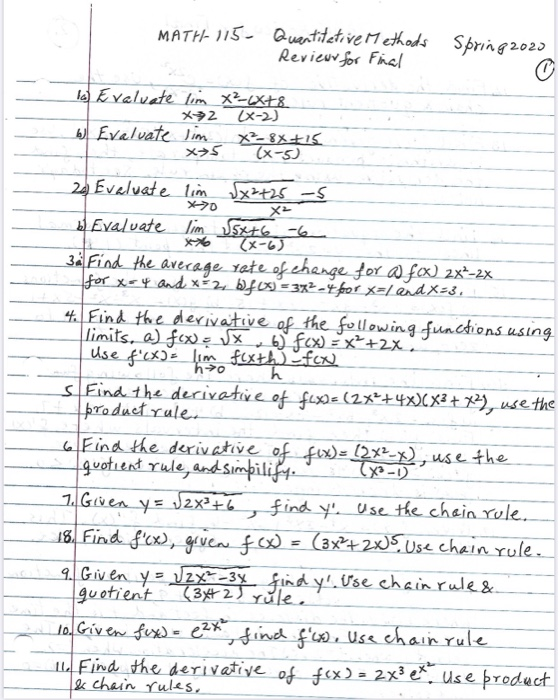 MATH-115- Quantitative Methods Spring 2020
Review for Final
①
1a) Evaluate lim x→2 x²-6x+8 / (x-2)
b) Evaluate lim x→5 x²-8x+15 / (x-5)
2a) Evaluate lim x→0 √x²+25 -5 / x²
b) Evaluate lim x→6 √5x+6 -6 / (x-6)
3. Find the average rate of change for a) f(x) 2x²-2x
for x=4 and x=2, b) f(x)=3x²-4 for x=1 and x=3.
4. Find the derivative of the following functions using
limits. a) f(x)=√x, b) f(x)=x²+2x.
Use f'(x)= lim h→0 f(x+h)-f(x) / h
5 Find the derivative of f(x)=(2x²+4x)(x³+x²), use the
product rule.
6 Find the derivative of f(x)= (2x²-x) / (x³-1), use the
quotient rule, and simpilify.
7. Given y=√2x³+6, find y'. Use the chain rule.
18. Find f'(x), given f(x) = (3x²+2x)⁵. Use chain rule.
9. Given y = √2x²-3x / (3x+2) find y'. Use chain rule &
quotient rule.
10. Given f(x)=e^2x², find f'(x). Use chain rule
11. Find the derivative of f(x)=2x³e^x². Use product
& chain rules.